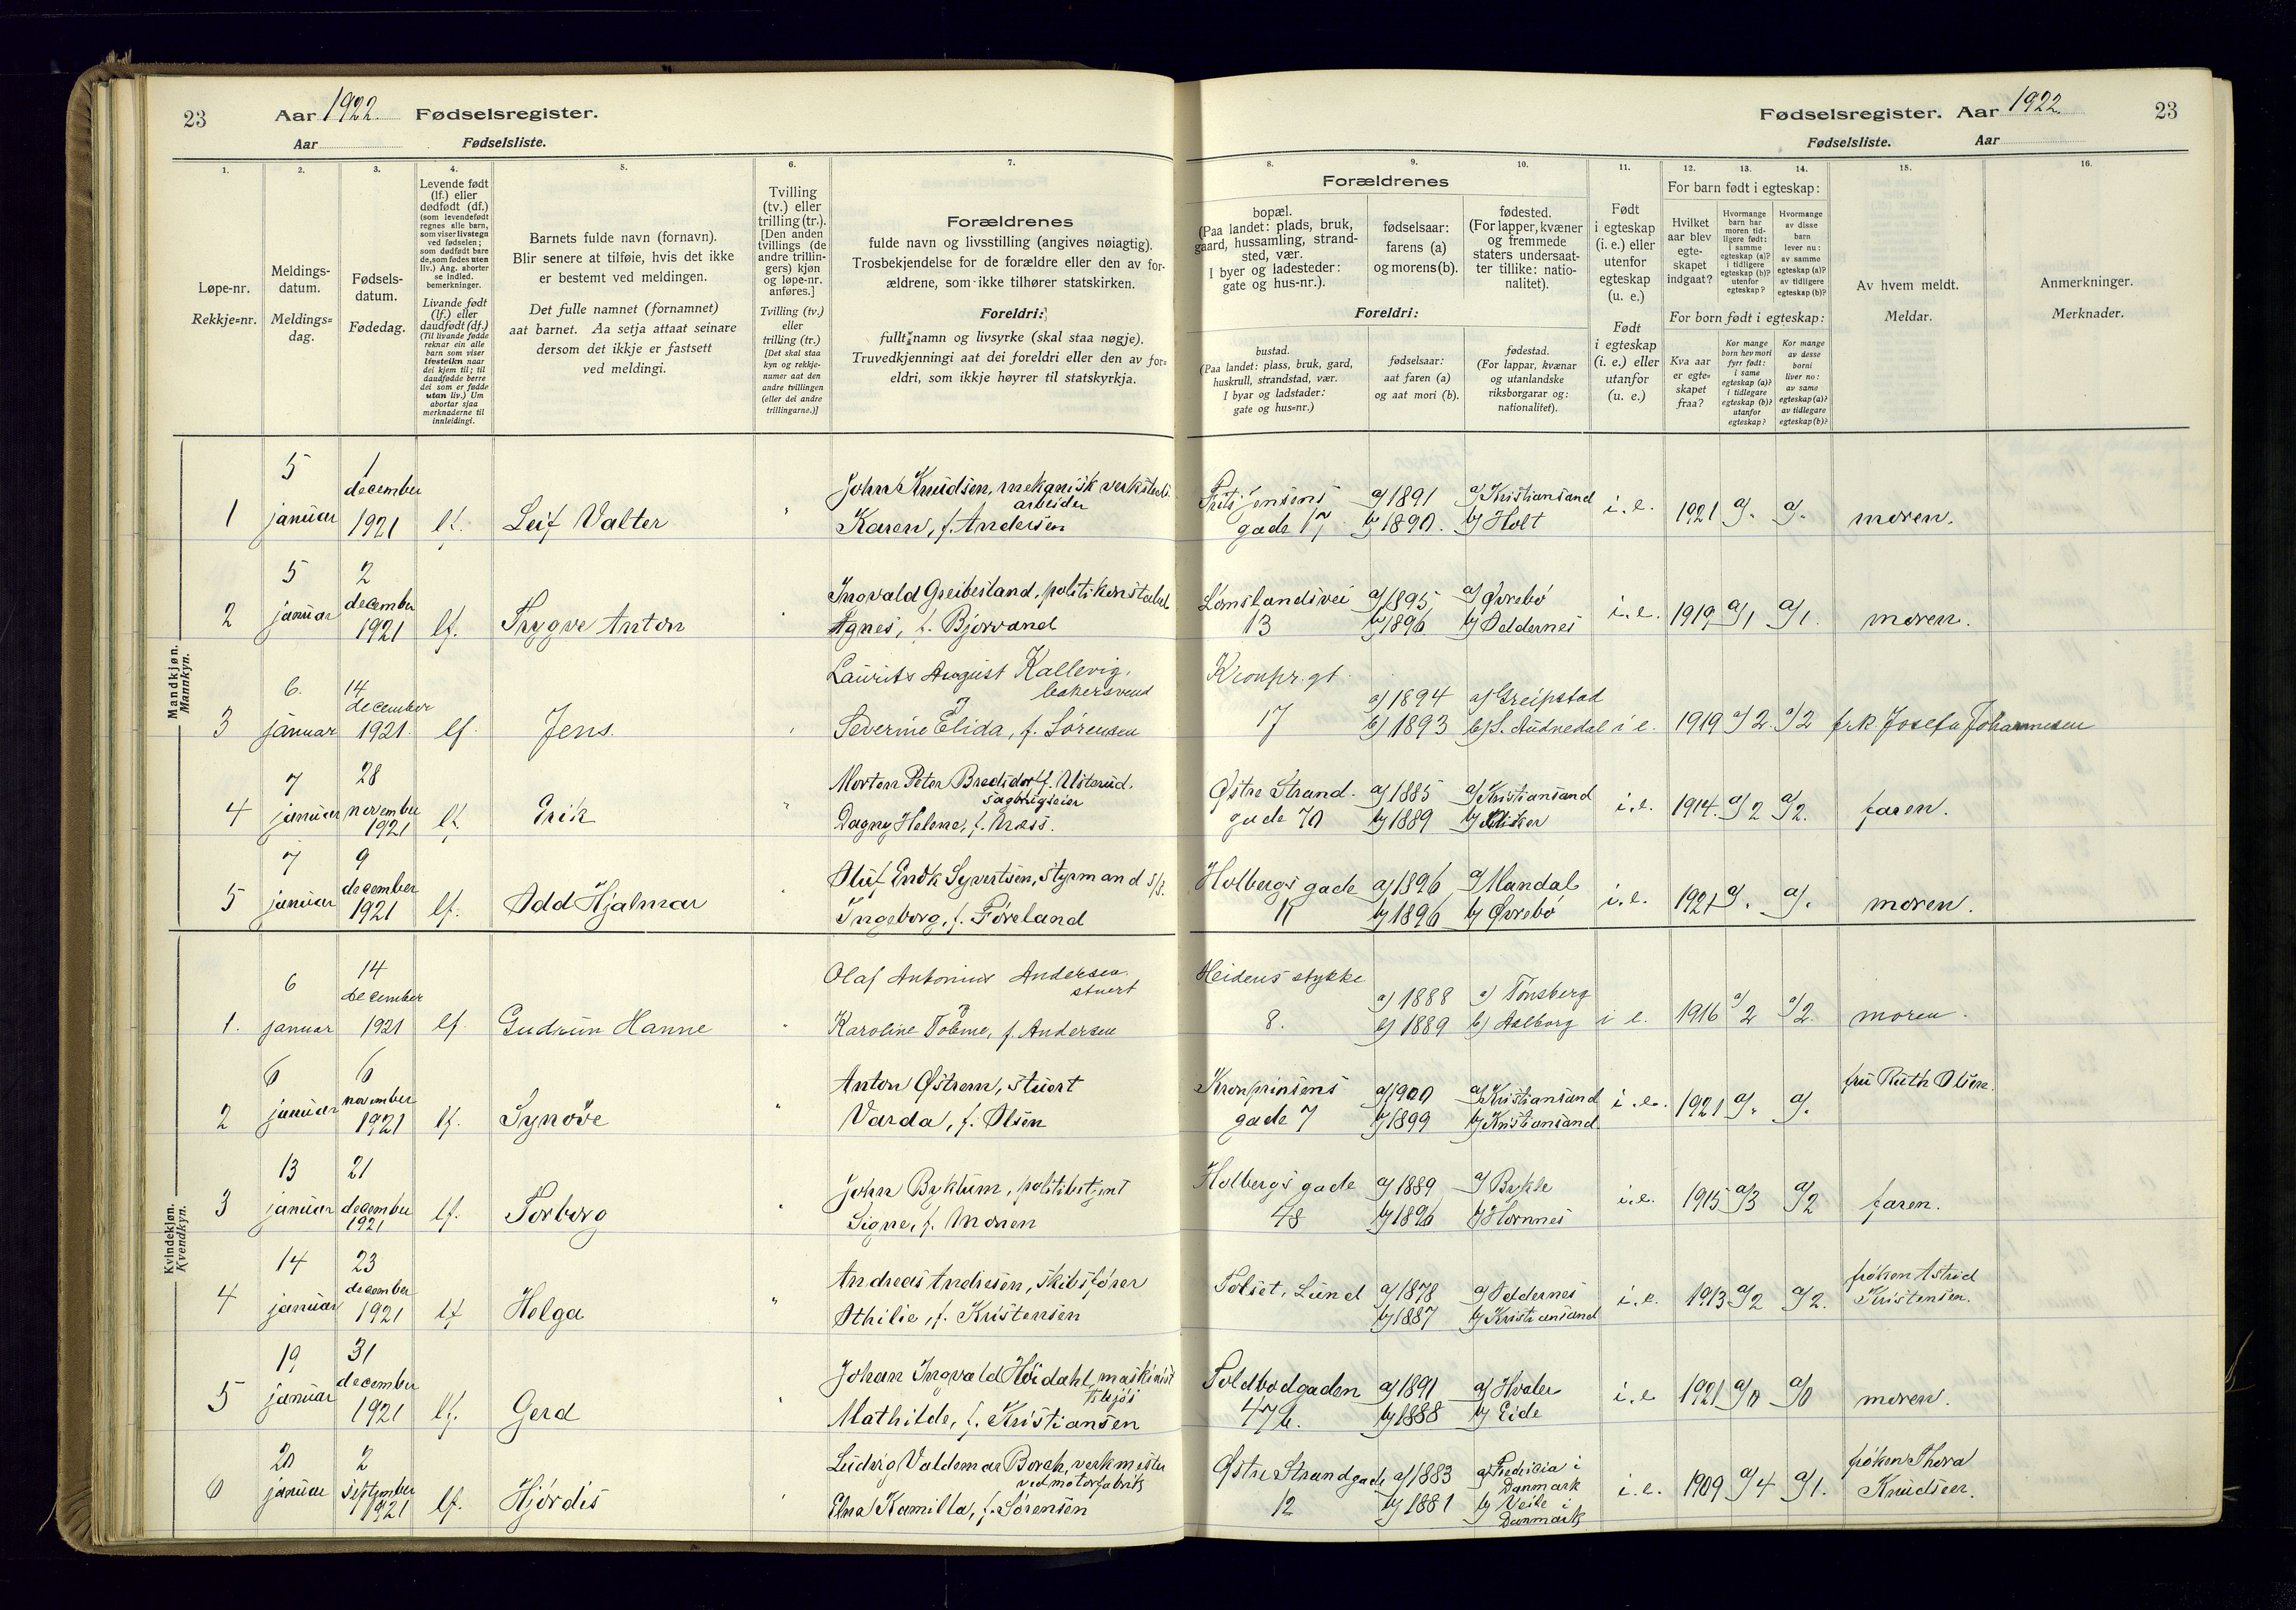 23
Aar 1922. Fødselsregister.
Aar Fødselsliste.
1.
2.
3.
4.
5.
6.
7.
Løpe-nr.
Rekkje=nr.
Meldings-
datum.
Meldings=
dag.
Fødsels-
datum.
Fødedag.
Levende født
(lf.) eller
dødfødt (df.)
(som levendefødt
regnes alle barn,
som viser livstegn
ved fødselen;
som dødfødt bare
de, som fødes uten
liv.) Ang. aborter
se indled.
bemerkninger.
Livande født
(lf.) eller
daudfødt (df.)
(Til livande fødde
reknar ein alle
barn som viser
livsteikn naar
dei kjem til; til
daudfødde berre
dei som er fødde
utan liv.) Um
abortar sjaa
merknaderne til
innleidingi.
Barnets fulde navn (fornavn).
Blir senere at tilføie, hvis det ikke
er bestemt ved meldingen.
Det fulle namnet (fornamnet)
aat barnet. Aa setja attaat seinare
dersom det ikkje er fastsett
ved meldingi.
Tvilling
(tv.) eller
trilling (tr.).
[Den anden
tvillings (de
andre trillin-
gers) kjøn
og løpe-nr.
anføres.]
Tvilling (tv.)
eller
trilling (tr.)
[Det skal staa
kyn og rekkje-
numer aat den
andre tvillingen
(eller dei andre
trillingarne.)]
Forældrenes
fulde navn og livsstilling (angives nøiagtig).
Trosbekjendelse for de forældre eller den av for-
ældrene, som ikke tilhører statskirken.
Foreldri:
fullt namn og livsyrke (skal staa nøgje).
Truvedkjenningi aat dei foreldri eller den av for-
eldri, som ikkje høyrer til statskyrkja.
Mandkjøn.
Mannkyn.
1
5
januar
1
december
1921
lf.
Leif Valter
"
John Knudsen, mekanisk verksteds
arbeider
Karen, f. Andersen
2
5
januar
2
december
1921
lf.
Thygve Anton
"
Ingvald Greibesland, politikonstabel
Agnes, f. Bjorvand
3
6.
januar
14
december
1921.
lf.
Jens.
"
Laurits August Kallevig,
bakersvend
Severine Elida, f. Sørensen
4
7
januar
28
november
1921
lf.
Erik
"
Morten Peter Bredsdorff
sagbrugseier
Dagny Helene, f.
5
7
januar
9
december
1921
lf.
Odd Hjalmar
"
Oluf Syvertsen, styrmand s/s.
Ingeborg, f. Føreland
Kvindekjøn.
Kvendkyn.
1.
6
januar
14
december
1921
lf.
Gudrun Hanne
"
Olaf Antonius Andersen.
stuert
Karoline f. Andersen
2
6
januar
6
november
1921
lf.
Synøve
"
Anton Østrem, stuert
Varda, f. Olsen
3
13
januar
21
december
1921
lf.
Torborg
"
John Byklum, politibetjent
Signe, f. Monen
4
14
januar
23
december
1921
lf
Helga
"
Andreas Andresen, Skibsfører
Othilie, f. Kristensen
5
19
januar
31
december
1921
lf.
Gerd
"
Johan Ingvald Hørdahl, maskinist
tilsjøs
Mathilde, f. Kristiansen
6
20
januar
2
september
1921
lf.
Hjørdis
"
Ludvig Valdemar Borch, verkmester
ved motorfabrik
Elna Kamilla, f. Sørensen
Fødselsregister. Aar 1922. 23
Fødselsliste. Aar
8.
9.
10.
11.
12.
13.
14.
15.
16.
Forældrenes
bopæl.
(Paa landet: plads, bruk,
gaard, hussamling, strand-
sted, vær.
I byer og ladesteder:
gate og hus-nr.).
fødselsaar:
farens (a)
og morens (b).
fødested.
(For lapper, kvæner
og fremmede
staters undersaat-
ter tillike: natio-
nalitet).
Foreldri:
bustad.
(Paa landet: plass, bruk, gard,
huskrull, strandstad, vær.
I byar og ladstader:
gate og hus=nr.)
fødselsaar:
aat faren (a)
og aat mori (b).
fødestad.
(For lappar, kvænar
og utanlandske
riksborgarar og:
nationalitet).
Født
i egteskap
(i. e.) eller
utenfor
egteskap
(u. e.)
Født
i egteskap
(i. e.) eller
utanfor
(u. e.)
For barn født i egteskap:
Hvilket
aar blev
egte-
skapet
indgaat?
Hvormange
barn har
moren tid-
ligere født:
i samme
egteskap (a)?
i tidligere
egteskap (b)?
utenfor
egteskap?
Hvormange
av disse
barn
lever nu:
av samme
egteskap (a)?
av tidligere
egteskap (b)?
For born født i egteskap:
Kva aar
er egte=
skapet
fraa?
Kor mange
born hev mori
fyrr født:
i same
egteskap (a)?
i tidlegare
egteskap (b)?
utanfor
egteskap?
Kor mange
av desse
borni
liver no:
av same
egteskap (a)?
av tidlegare
egteskap (b)?
Av hvem meldt.
Meldar.
Anmerkninger.
Merknader.
Frits Jensens
gade 17
a) 1891
b) 1890.
a) Kristiansand
b) Holt
i. e.
1921
a).
a).
moren.
Lømslandsvei
13
a) 1895
b) 1896
a) Øvrebø
b) Oddernes
i. e.
1919
a) 1
a) 1.
moren.
Kronpr. gt.
17
a) 1894
b) 1893
a) Greipstad
b) S. Audnedal
i e.
1919
a) 2.
a) 2
frk Josefa Johannesen
Østre Strand.
gade 70
a) 1885
b) 1889
a) Kristiansand
b)
i. e.
1914.
a) 2
a) 2.
faren.
Holbergs gade
11
a) 1896
b) 1896
a) Mandal
b) Øvrebø
i. e.
1921
a).
a).
moren.
Heidens stykke
8.
a) 1888
b) 1889
a) Tønsberg
b) Aalborg
i e.
1916
a) 2
a) 2.
moren.
Kronprinsens
gade 7
a) 1900
b) 1899
a) Kristiansand
b) Kristiansand
i. e.
1921
a).
a).
fru Ruth Olsen.
Holbergs gade
48
a) 1889
b) 1896
a) Bykle
b) Hornnes
i. e.
1915
a) 3
a) 2
faren.
Lund
a) 1878
b) 1887
a) Oddernes
b) Kristiansand
i. e.
1913
a) 2
a) 2.
frøken Astrid
Kristensen.
Toldbodgaden
47 b.
a) 1891
b) 1888
a) Hvaler
b) Eide
i. e
1921
a) 0
a) 0
moren.
Østre Strandgade
12
a) 1883
b) 1881
a) Fredericia i
Danmark
b) Veile i
Danmark
i. e.
1909
a) 4
a) 1.
frøken Thora
Knudsen.